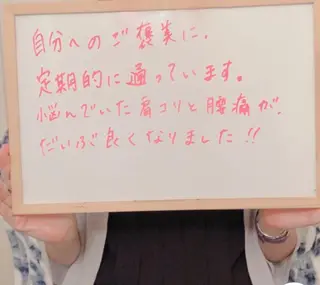 自分へのご褒美に、
定期的に通っています。
悩んでいた肩コリと腰痛が、
だいぶ良くなりました!!